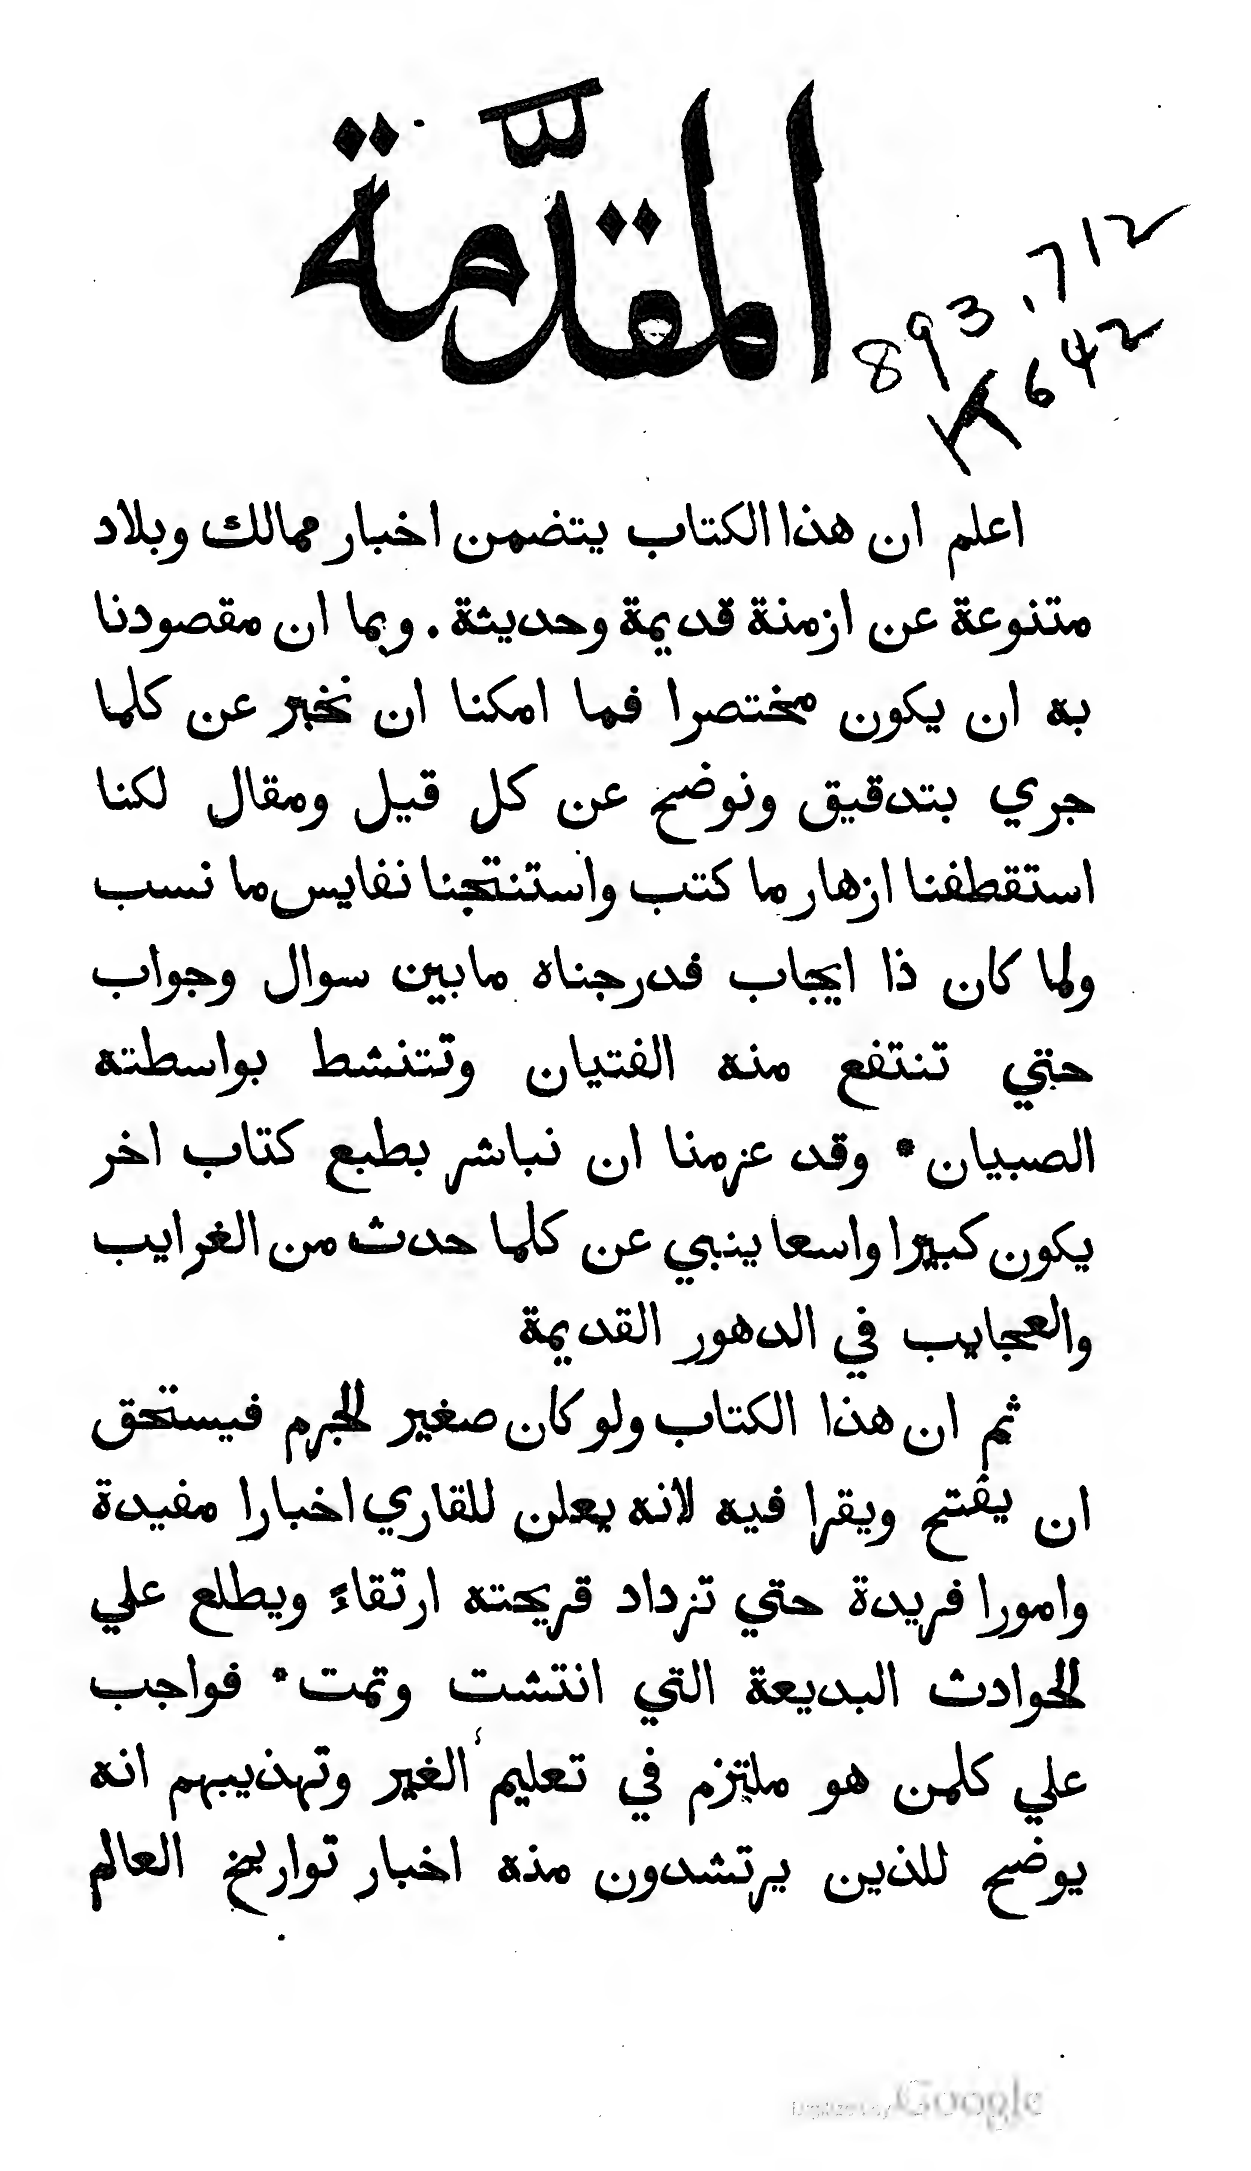 المقدّمة
893.712
K642
اعلم ان هذا الكتاب يتضمن اخبار ممالك وبلاد
متنوعة عن ازمنة قديمة وحديثة . وبما ان مقصودنا
به ان يكون مختصرا فما امكنا ان نخبر عن كلما
جري بتدقيق ونوضح عن كل قيل ومقال لكنا
استقطفنا ازهار ما كتب واستنتجنا نفايس ما نسب
ولما كان ذا ايجاب فدرجناه مابين سوال وجواب
حتي تنتفع منه الفتيان وتتنشط بواسطته
الصبيان * وقد عزمنا ان نباشر بطبع كتاب اخر
يكون كبيرا واسعا ينبي عن كلما حدث من الغرايب
والعجايب في الدهور القديمة
ثم ان هذا الكتاب ولو كان صغير الجرم فيستحق
ان يفتح ويقرا فيه لانه يعلن للقاري اخبارا مفيدة
وامورا فريدة حتي تزداد قريحته ارتقاءً ويطلع علي
الحوادث البديعة التي انتشت وتمت * فواجب
علي كلمن هو ملتزم في تعليم الغير وتهذيبهم انه
يوضح للذين يرتشدون مذه اخبار تواريخ العالم
Digitized by Google